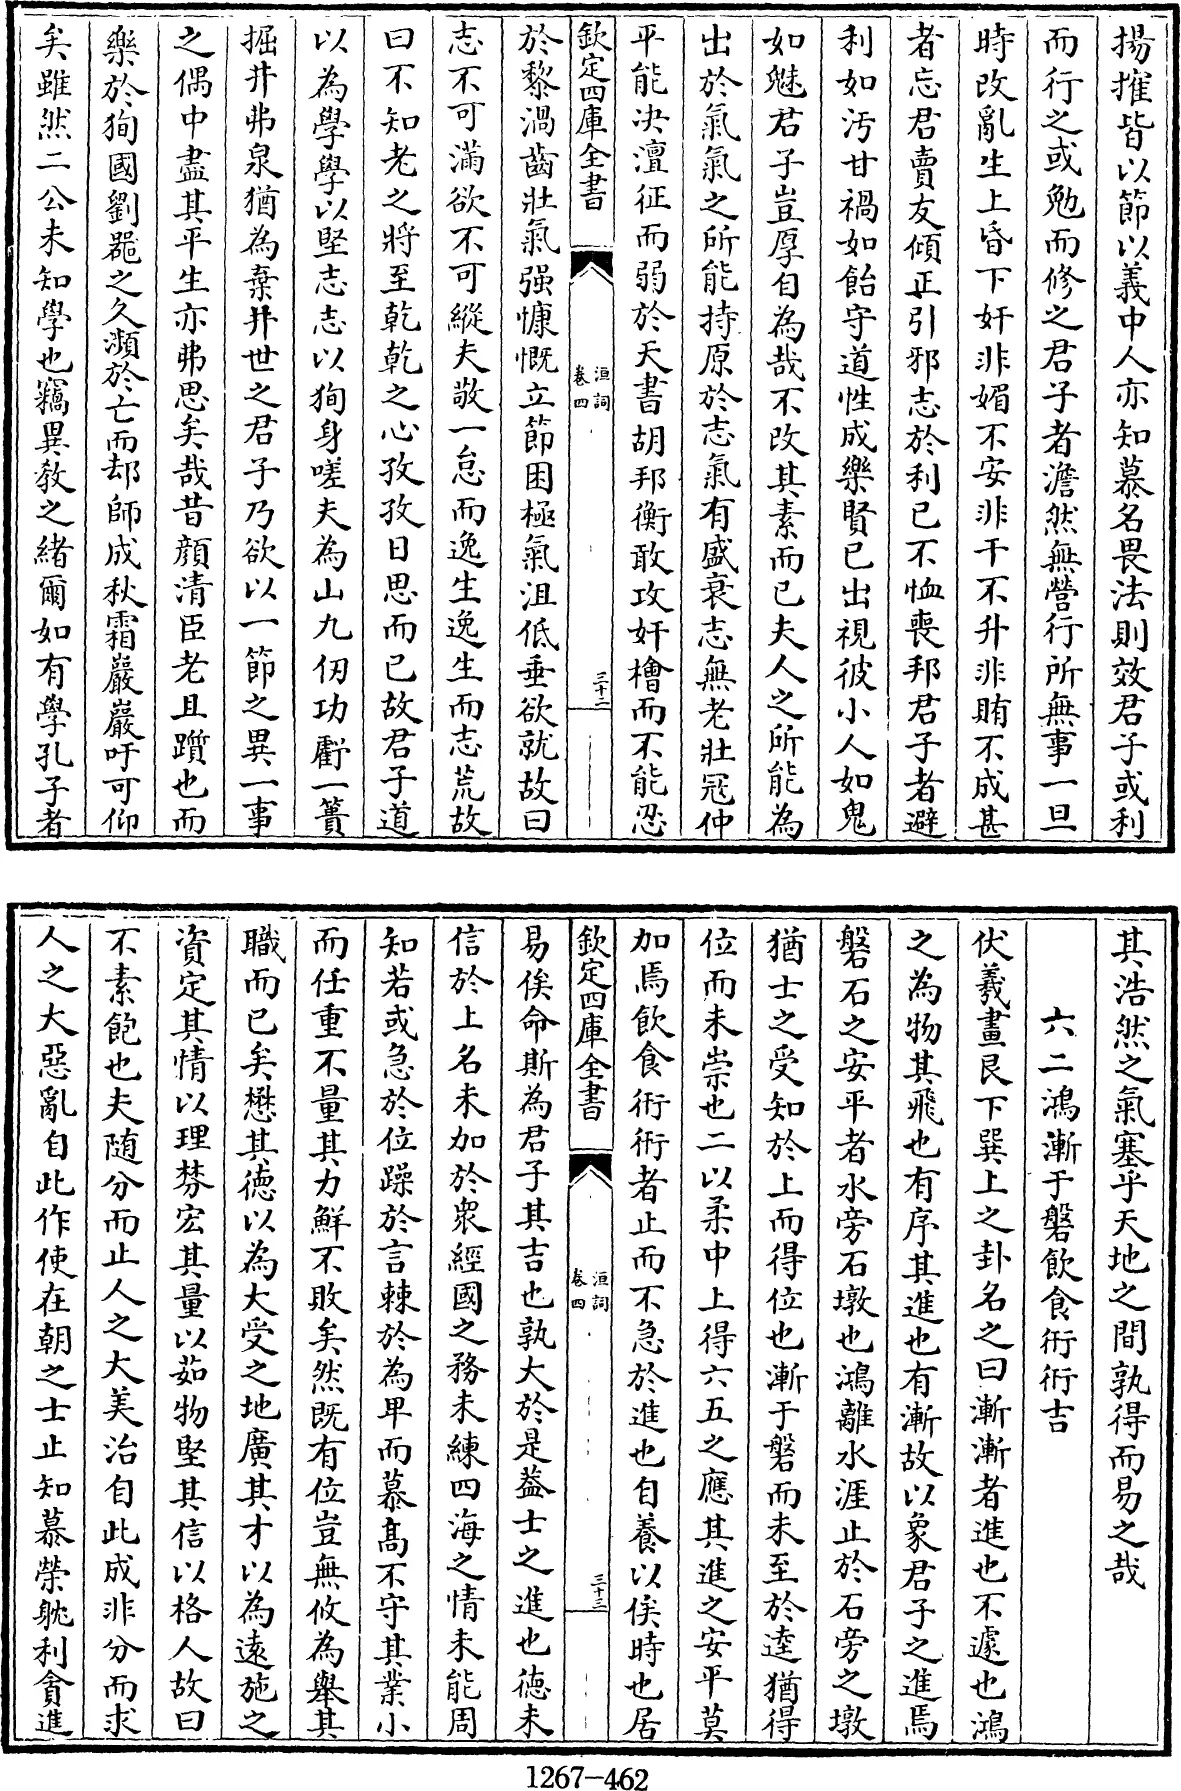 揚搉皆以節以義中人亦知慕名畏法則效君子或利
而行之或勉而修之君子者澹然無營行所無事一旦
時改亂生上昏下奸非媚不安非干不升非賄不成甚
者忘君賣友傾正引邪志於利已不恤喪邦君子者避
利如汚甘禍如飴守道性成樂賢已出視彼小人如鬼
如魅君子豈厚自為哉不改其素而已夫人之所能為
出於氣氣之所能持原於志氣有盛衰志無老壯冦仲
平能决澶征而弱於天書胡邦衡敢攻奸檜而不能忍
欽定四庫全書
洹詞
卷四
三十二
於黎渦齒壯氣强慷慨立節困極氣沮低垂欲就故曰
志不可滿欲不可縱夫敬一怠而逸生逸生而志荒故
曰不知老之將至乾乾之心孜孜日思而已故君子道
以為學學以堅志志以狥身嗟夫為山九仞功虧一簣
掘井弗泉猶為棄井世之君子乃欲以一節之異一事
之偶中盡其平生亦弗思矣哉昔顔清臣老且躓也而
樂於狥國劉器之久瀕於亡而却師成秋霜巖巖吁可仰
矣雖然二公未知學也竊異教之緒爾如有學孔子者
其浩然之氣塞乎天地之間孰得而易之哉
六二鴻漸于磐飲食衎衎吉
伏羲畫艮下巽上之卦名之曰漸漸者進也不遽也鴻
之為物其飛也有序其進也有漸故以象君子之進焉
磐石之安平者水旁石墩也鴻離水涯止於石旁之墩
猶士之受知於上而得位也漸于磐而未至於逵猶得
位而未崇也二以柔中上得六五之應其進之安平莫
加焉飲食衎衎者止而不急於進也自養以俟時也居
欽定四庫全書
洹詞
卷四
三十三
易俟命斯為君子其吉也孰大於是葢士之進也德未
信於上名未加於衆經國之務未練四海之情未能周
知若或急於位躁於言棘於為卑而慕髙不守其業小
而任重不量其力鮮不敗矣然既有位豈無攸為舉其
職而已矣懋其德以為大受之地廣其才以為逺施之
資定其情以理棼宏其量以茹物堅其信以格人故曰
不素飽也夫随分而止人之大美治自此成非分而求
人之大惡亂自此作使在朝之士止知慕榮躭利貪進
1267—462